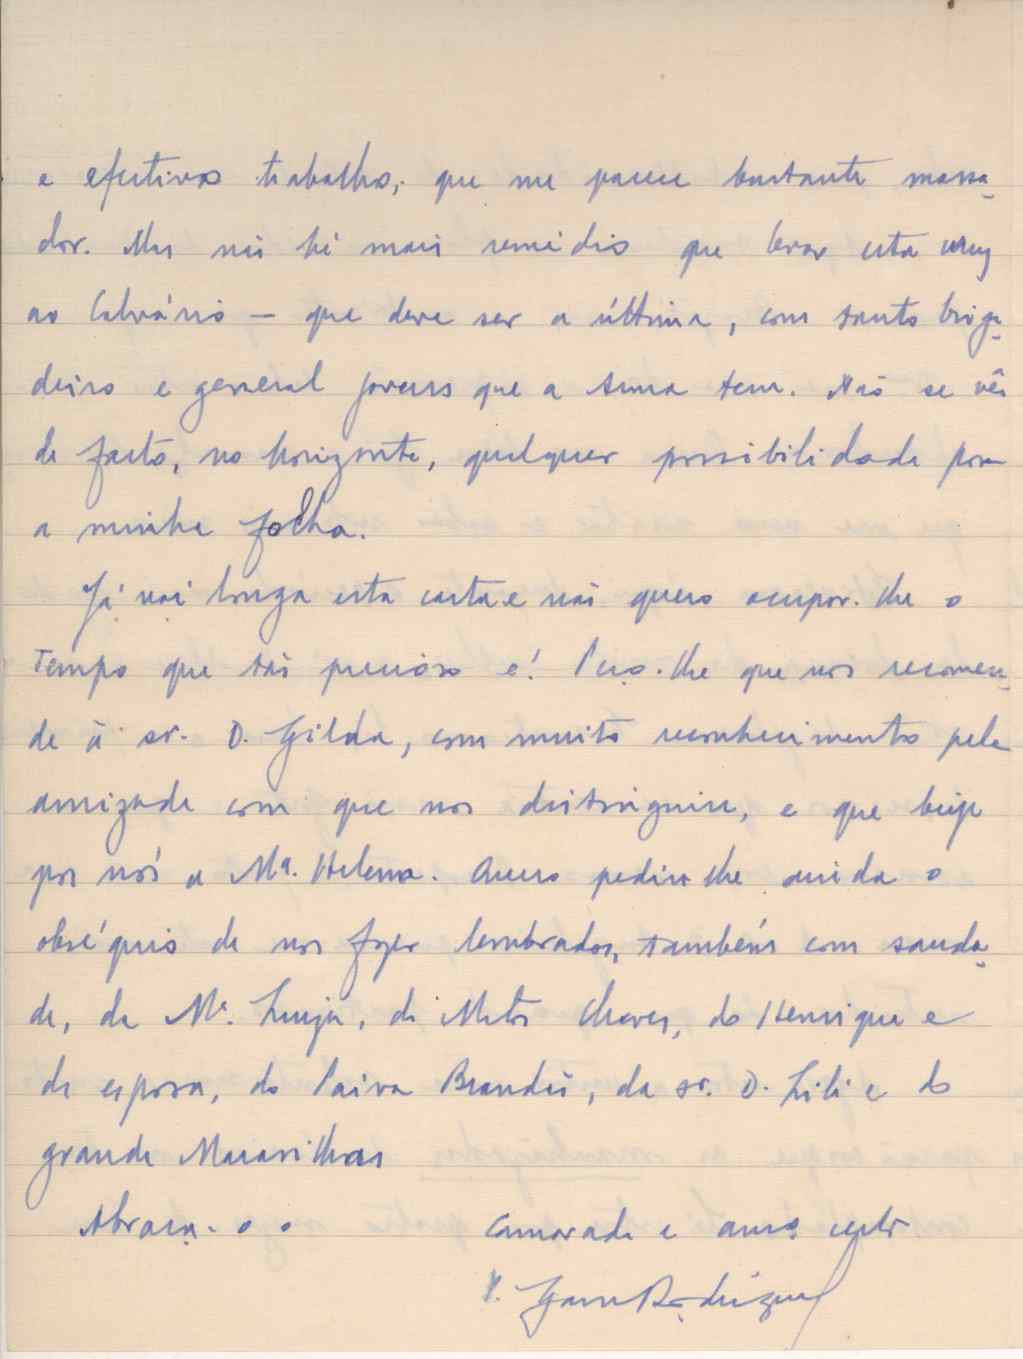 e efectivo trabalho, que me parece bastante massa-
dor. Mas não há mais remédio que levar esta cruz
ao Calvário — que deve ser a última, com tanto briga-
deiro e general jovens que a Arma tem. Não se vê
de facto, no horizonte, qualquer possibilidade para
a minha folha.
Já vai longa esta carta e não quero ocupar-lhe o
tempo que tão precioso é! Peço-lhe que nos recomen-
de à sr. D. Gilda, com muito reconhecimento pela
amizade com que nos distinguiu, e que beije
por nós a Mª. Helena. Quero pedir-lhe ainda o
obséquio de nos fazer lembrados, também com sauda-
de, da Mª. Luiza, do Matos Chaves, do Henrique e
da esposa, do Paiva Brandão, da sr. D. Lili e do
grande Maravilhas
Abraça-o o camarada e amº certo
Rodrigues